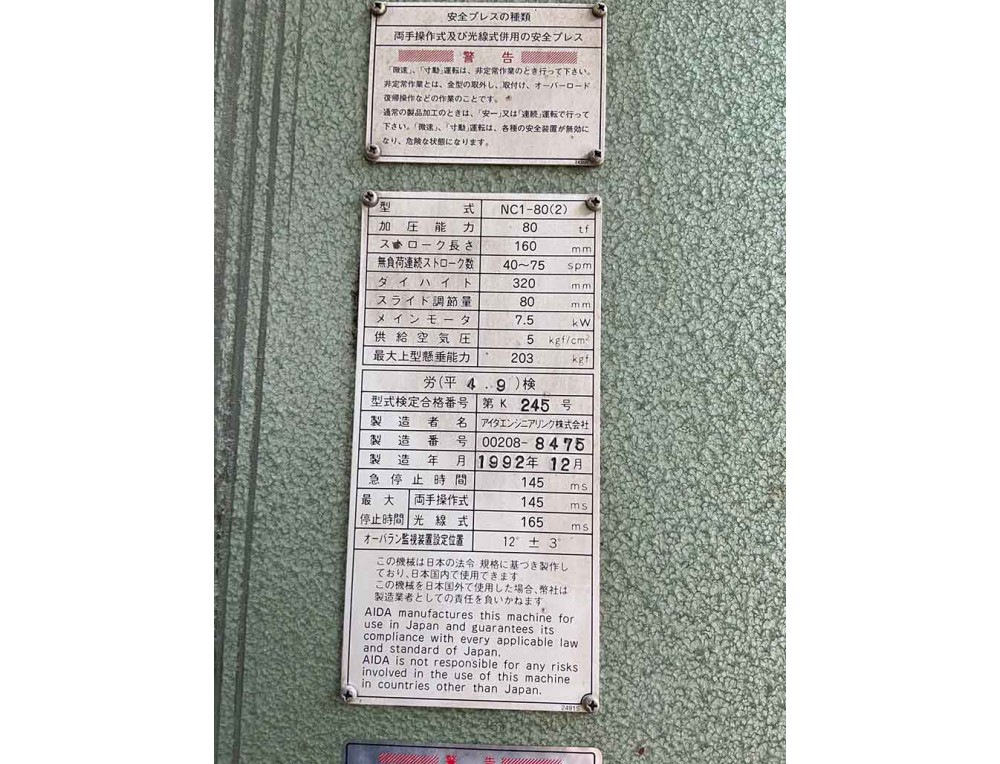 安全プレスの種類
両手操作式及び光線式併用の安全プレス
警 告
「微速」、「寸動」運転は、非定常作業のとき行って下さい。
非定常作業とは、金型の取外し、取付け、オーバーロード
復帰操作などの作業のことです。
通常の製品加工のときは、「安一」又は「連続」運転で行って
下さい。「微速」、「寸動」運転は、各種の安全装置が無効に
なり、危険な状態になります。
型 式 NC1-80(2)
加圧能力 80 tf
ストローク長さ 160 mm
無負荷連続ストローク数 40～75 spm
ダイハイト 320 mm
スライド調節量 80 mm
メインモータ 7.5 kW
供給空気圧 5 kgf/cm²
最大上型懸垂能力 203 kgf
労(平 4.9)検
型式検定合格番号 第K 245 号
製造者名 アイダエンジニアリング株式会社
製造番号 00208-8475
製造年月 1992年 12月
急停止時間 145 ms
最大 両手操作式 145 ms
停止時間 光線式 165 ms
オーバラン監視装置設定位置 12° ± 3°
この機械は日本の法令 規格に基づき製作し
ており、日本国内で使用できます
この機械を日本国外で使用した場合、弊社は
製造業者としての責任を負いかねます
AIDA manufactures this machine for
use in Japan and guarantees its
compliance with every applicable law
and standard of Japan.
AIDA is not responsible for any risks
involved in the use of this machine
in countries other than Japan.
警 告